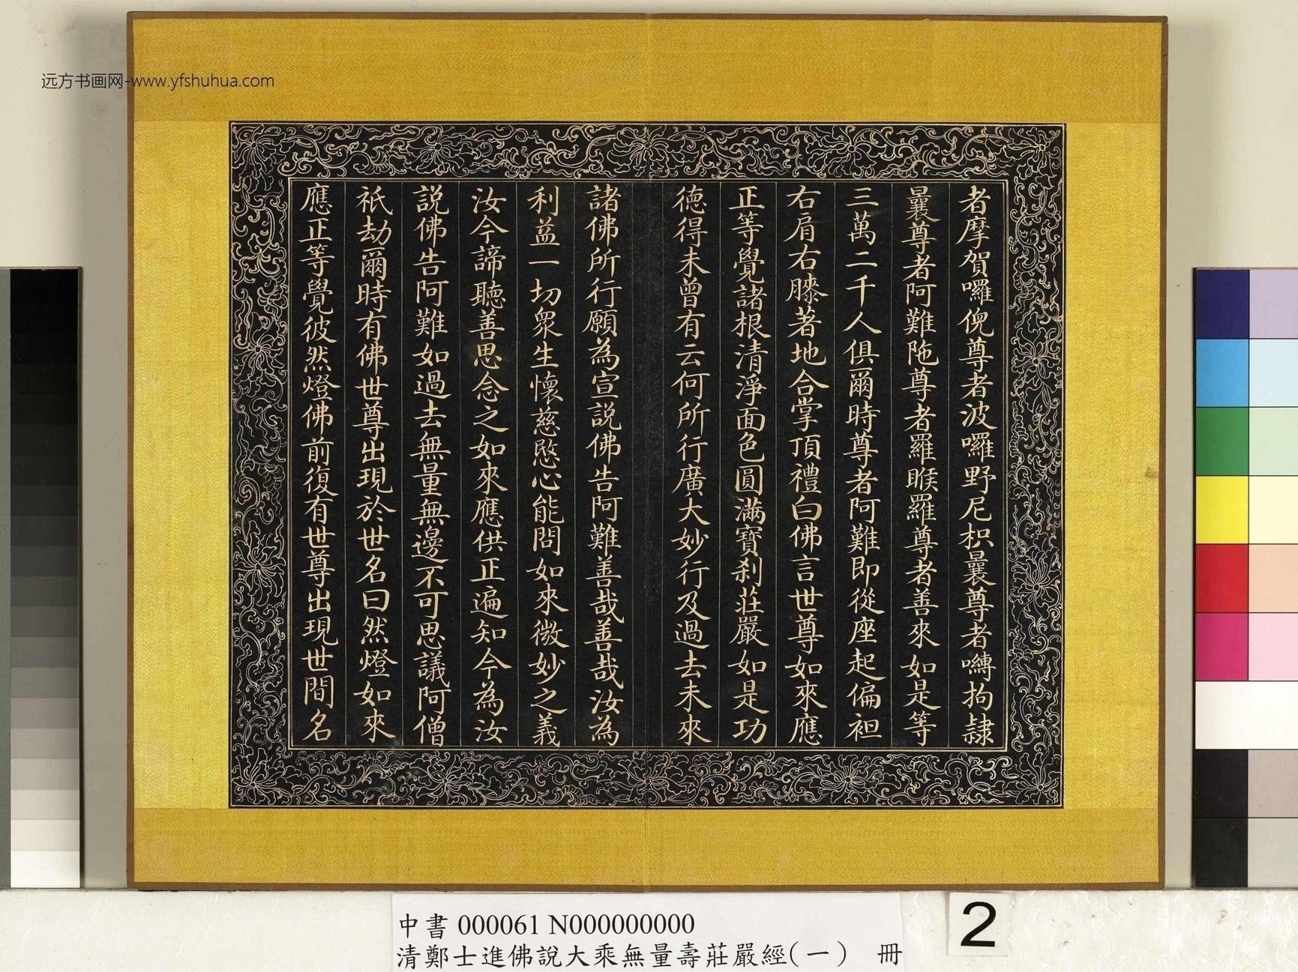 远方书画网-www.yfshuhua.com
者摩賀囉倪尊者波囉野尼枳曩尊者嚩拘隷
曩尊者阿難陁尊者羅睺羅尊者善來如是等
三萬二千人俱爾時尊者阿難即從座起偏袒
右肩右膝著地合掌頂禮白佛言世尊如來應
正等覺諸根清淨面色圓滿寶刹莊嚴如是功
德得未曾有云何所行廣大妙行及過去未來
諸佛所行願為宣説佛告阿難善哉善哉汝為
利益一切衆生懷慈愍心能問如來微妙之義
汝今諦聽善思念之如來應供正遍知今為汝
説佛告阿難如過去無量無邊不可思議阿僧
祇劫爾時有佛世尊出現於世名曰然燈如來
應正等覺彼然燈佛前復有世尊出現世間名
中書 000061 N000000000
清鄭士進佛說大乘無量壽莊嚴經(一) 冊
2